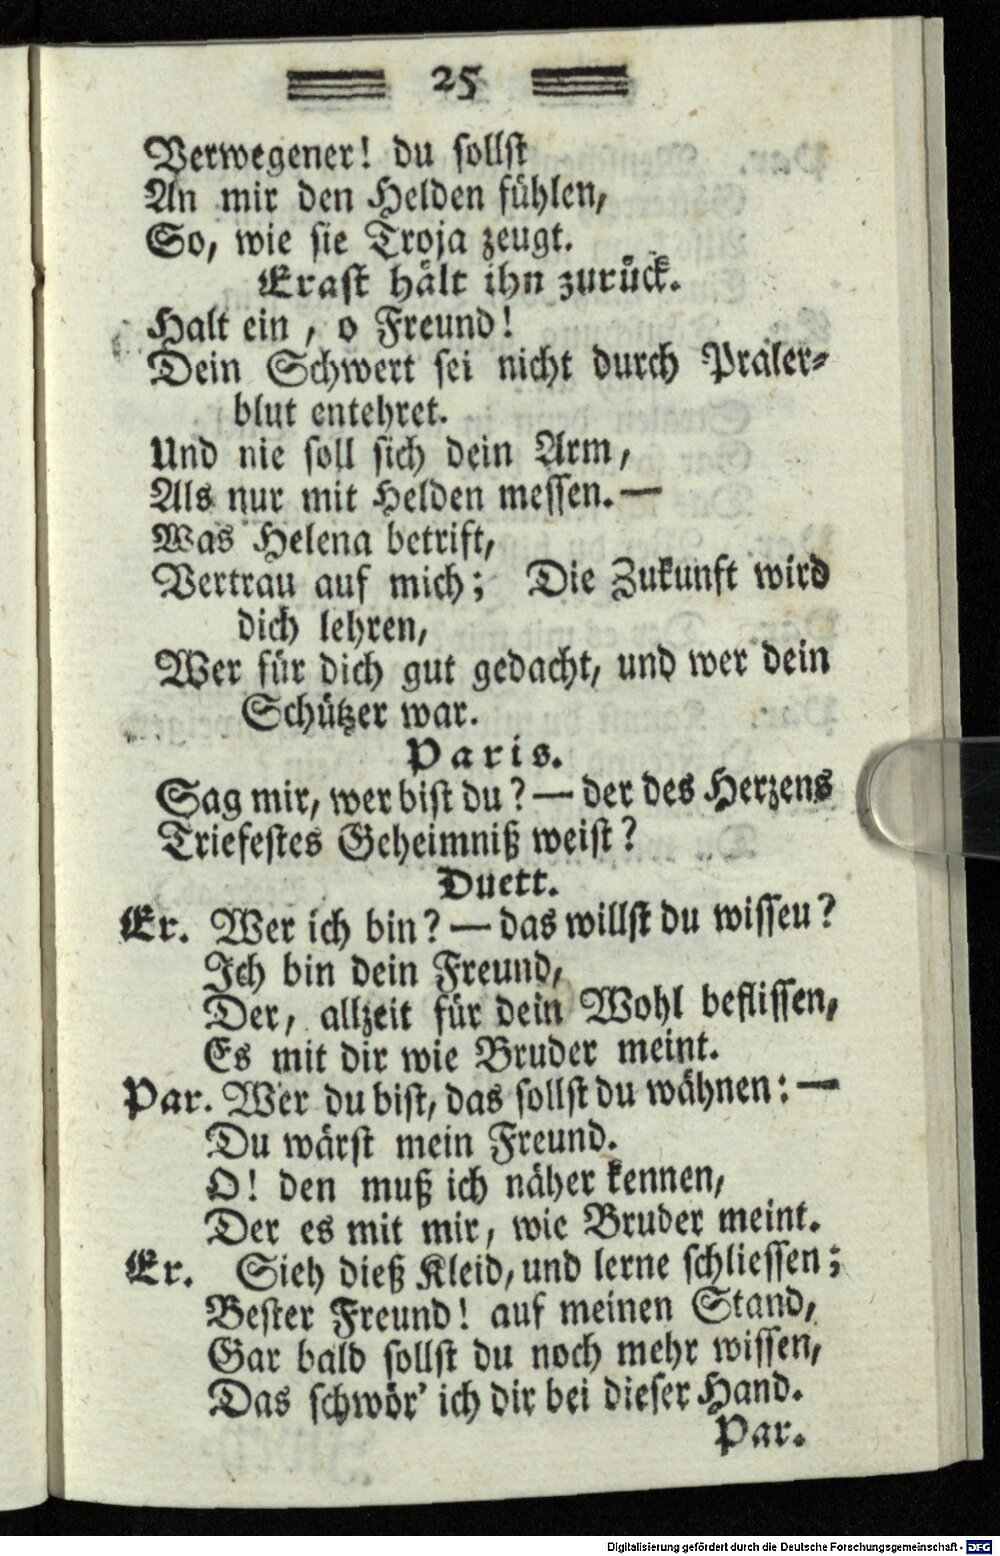 25
Verwegener! du sollst
An mir den Helden fühlen,
So, wie sie Troja zeugt.
Erast hält ihn zurück.
Halt ein, o Freund!
Dein Schwert sei nicht durch Praler-
blut entehret.
Und nie soll sich dein Arm,
Als nur mit Helden messen. —
Was Helena betrift,
Vertrau auf mich; Die Zukunft wird
dich lehren,
Wer für dich gut gedacht, und wer dein
Schützer war.
Paris.
Sag mir, wer bist du? — der des Herzens
Triefestes Geheimniß weist?
Duett.
Er. Wer ich bin? — das willst du wisseu?
Ich bin dein Freund,
Der, allzeit für dein Wohl beflissen,
Es mit dir wie Bruder meint.
Par. Wer du bist, das sollst du wähnen: —
Du wärst mein Freund.
O! den muß ich näher kennen,
Der es mit mir, wie Bruder meint.
Er. Sieh dieß Kleid, und lerne schliessen;
Bester Freund! auf meinen Stand,
Gar bald sollst du noch mehr wissen,
Das schwör' ich dir bei dieser Hand.
Par.
Digitalisierung gefördert durch die Deutsche Forschungsgemeinschaft - DFG